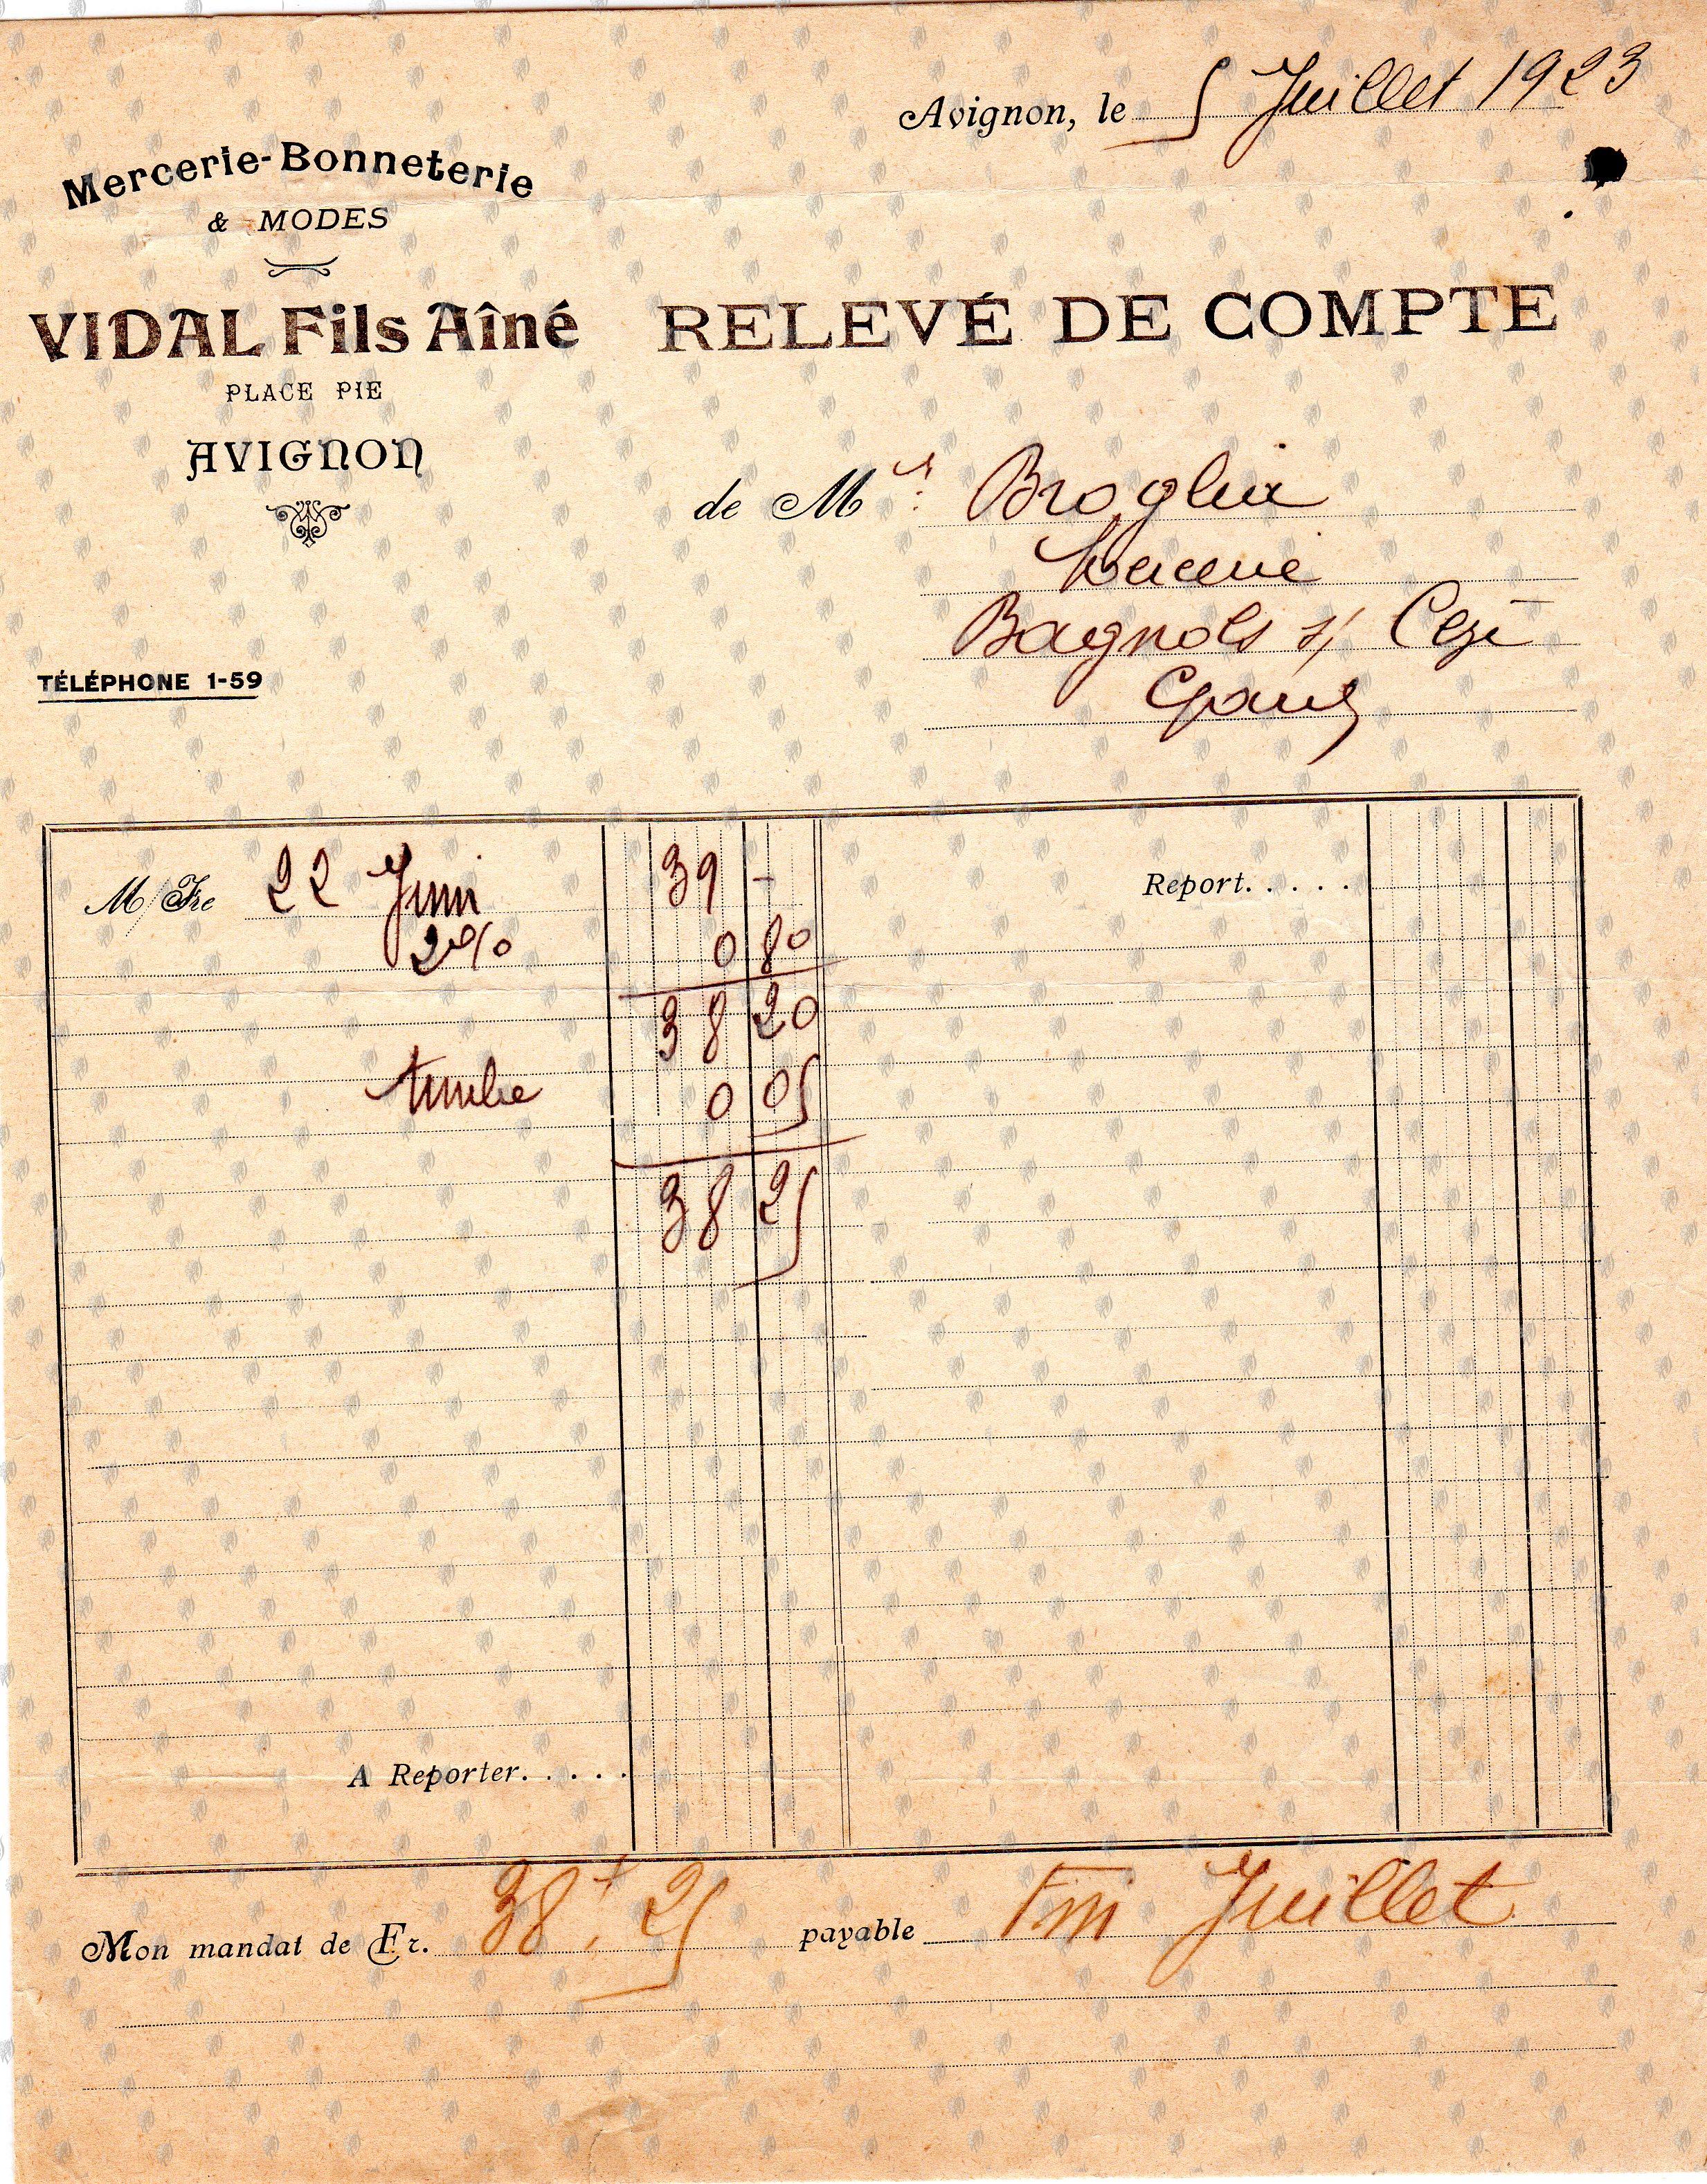 Avignon, le 5 Juillet 1923
Mercerie-Bonneterie
& MODES
VIDAL Fils Aîné
PLACE PIE
AVIGNON
TÉLÉPHONE 1-59
RELEVÉ DE COMPTE
de Mr: Broglia
Mercerie
Bagnols s/ Cèze
Gard
M/Fre 22 Juin 39 -
2% 0 80
38 20
timbre 0 05
38 25
A Reporter.....
Report.....
Mon mandat de Fr. 38f, 25 payable Fin Juillet